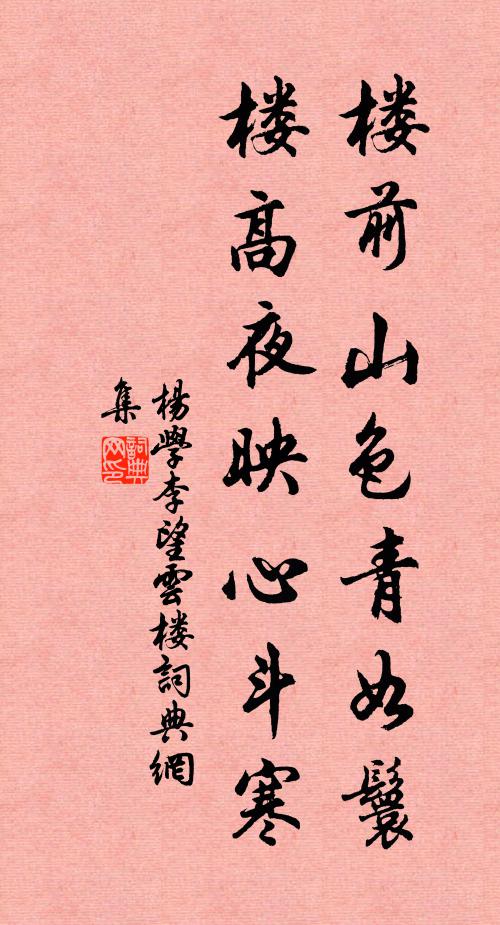 楼前山色青如鬟
楼高夜映心斗寒
楊學李望雲楼詞典網
集
詞典网印